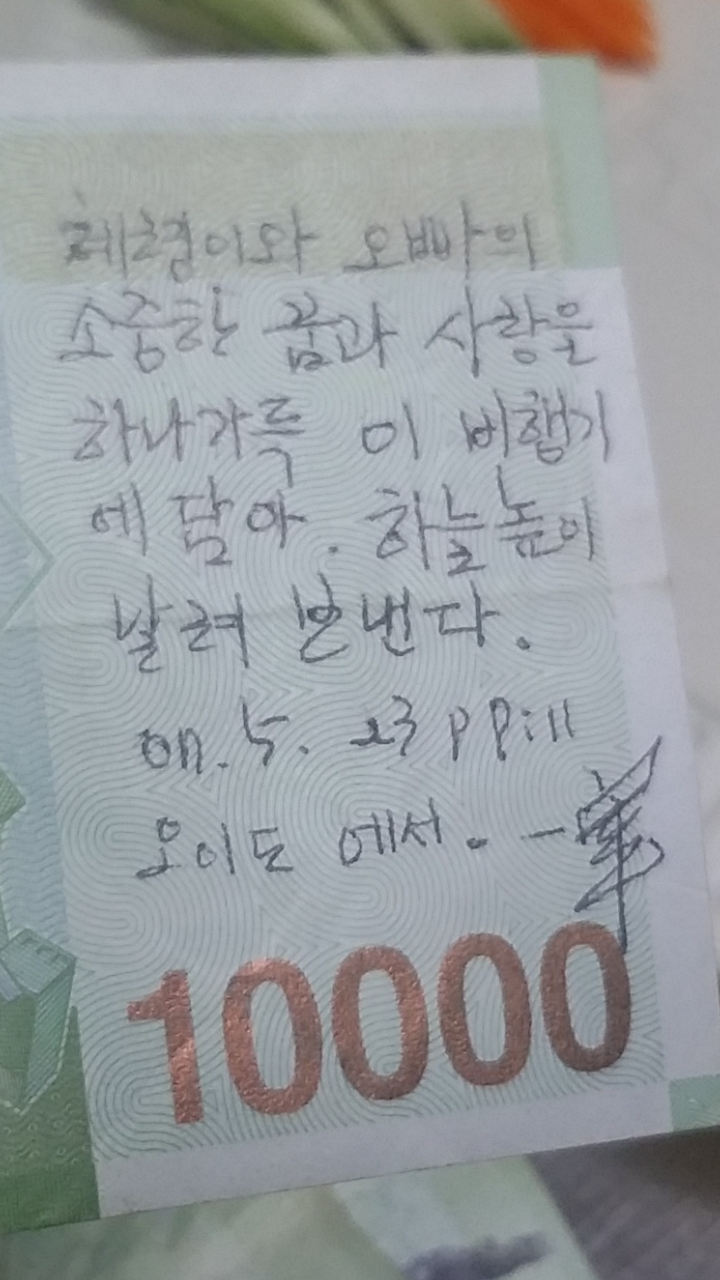 오빠의
소중한 꿈과 사랑을
하나가득 이 비행기
에 담아. 하늘높이
날려 보낸다.
오이도 에서.
10000